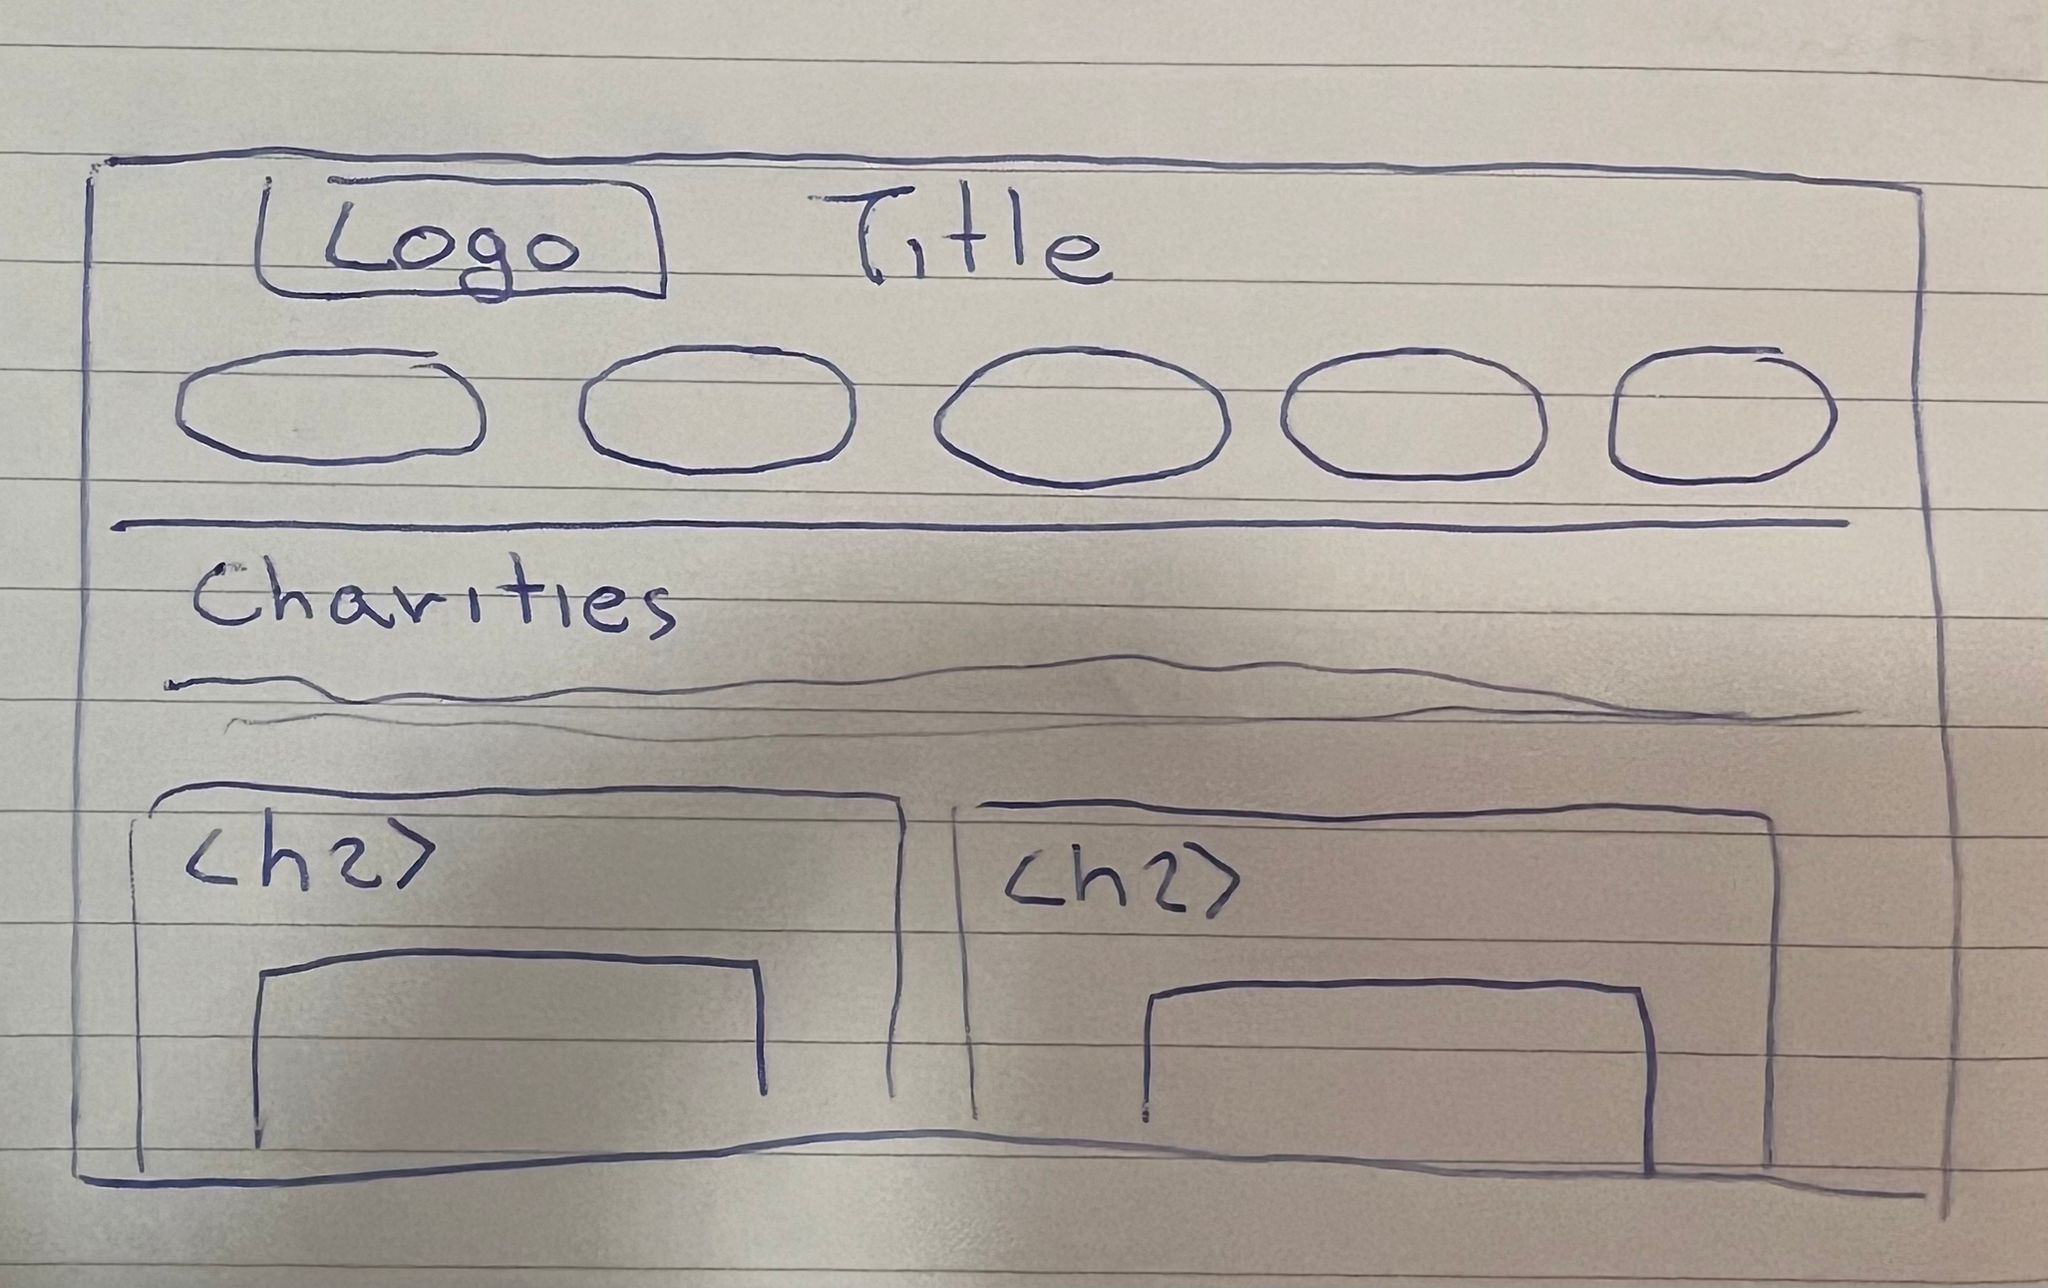 Logo Title
Charities
<h2> <h2>